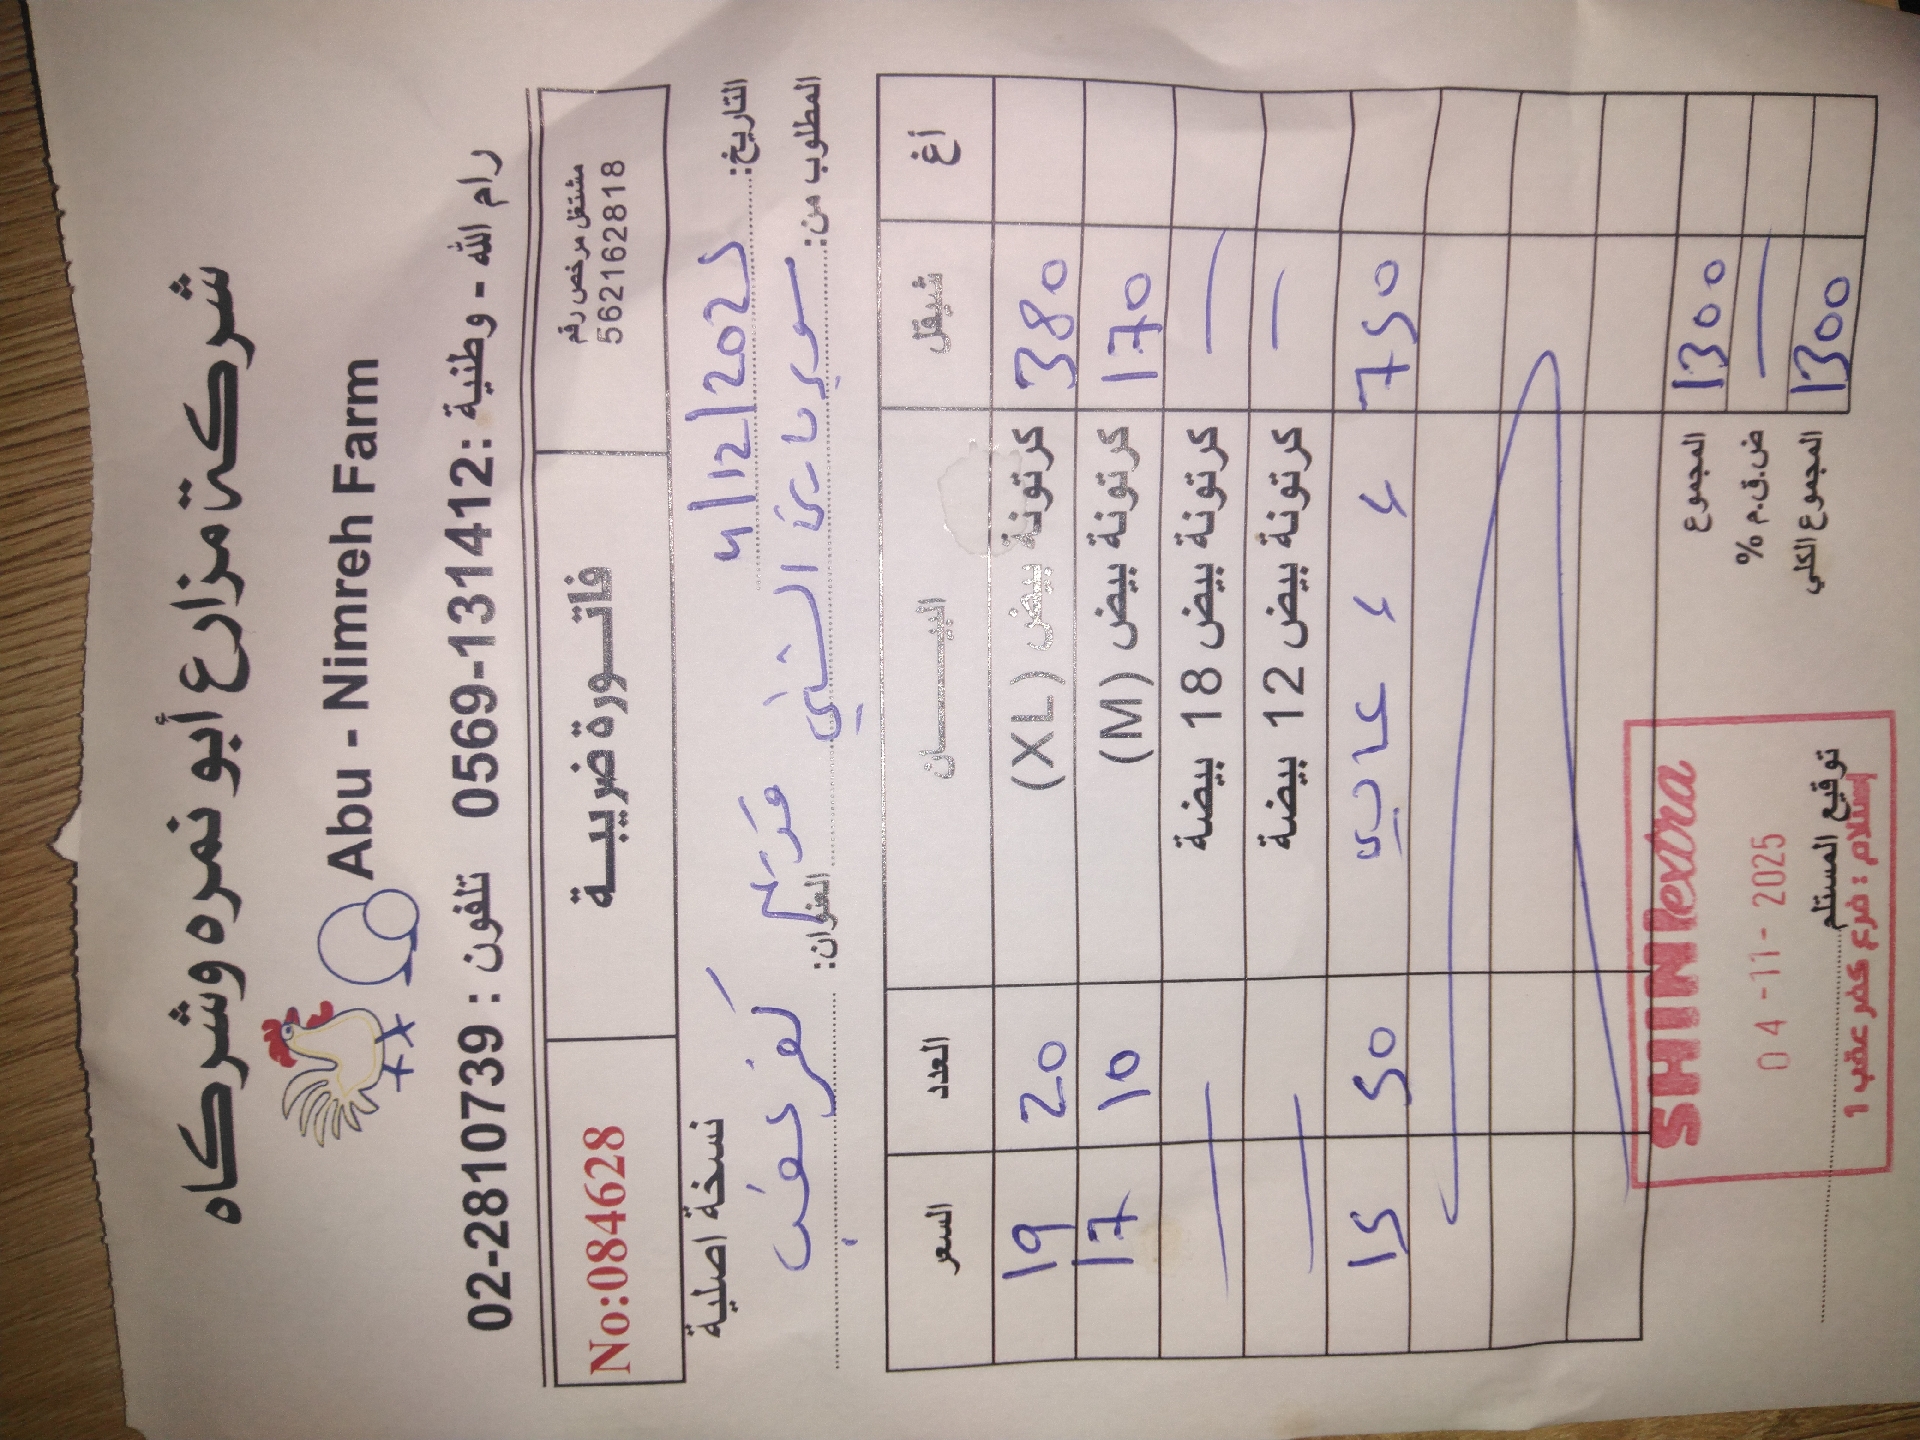 شركة مزارع أبو نمره وشركاه
Abu - Nimreh Farm
رام الله - وطنية : 0569-131412 تلفون : 02-2810739
مشتغل مرخص رقم
562162818
فاتورة ضريبية
No:084628
التاريخ: 4/12/2025 نسخة اصلية
المطلوب من: سوبر ماركت الشني العنوان: كفر عقب
أغ شيقل البيان العدد السعر
380 كرتونة بيض (XL) 20 19
170 كرتونة بيض (M) 10 17
— كرتونة بيض 18 بيضة — —
— كرتونة بيض 12 بيضة — —
750 50 15
1300 المجموع
— ض.ق.م %
1300 المجموع الكلي
توقيع المستلم
SHINI extra
04-11-2025
إستلام : فرع كفر عقب 1